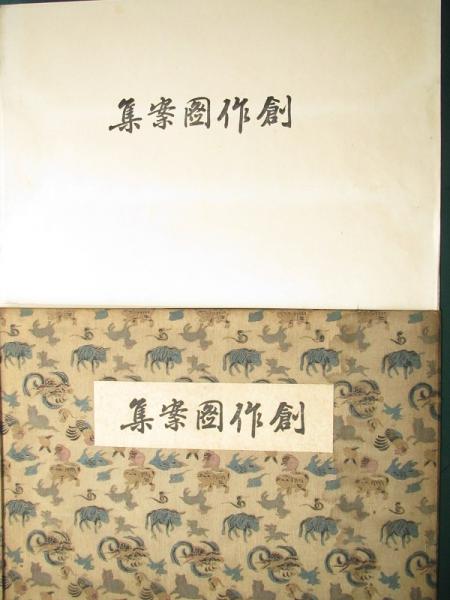 創作圖案集
創作圖案集